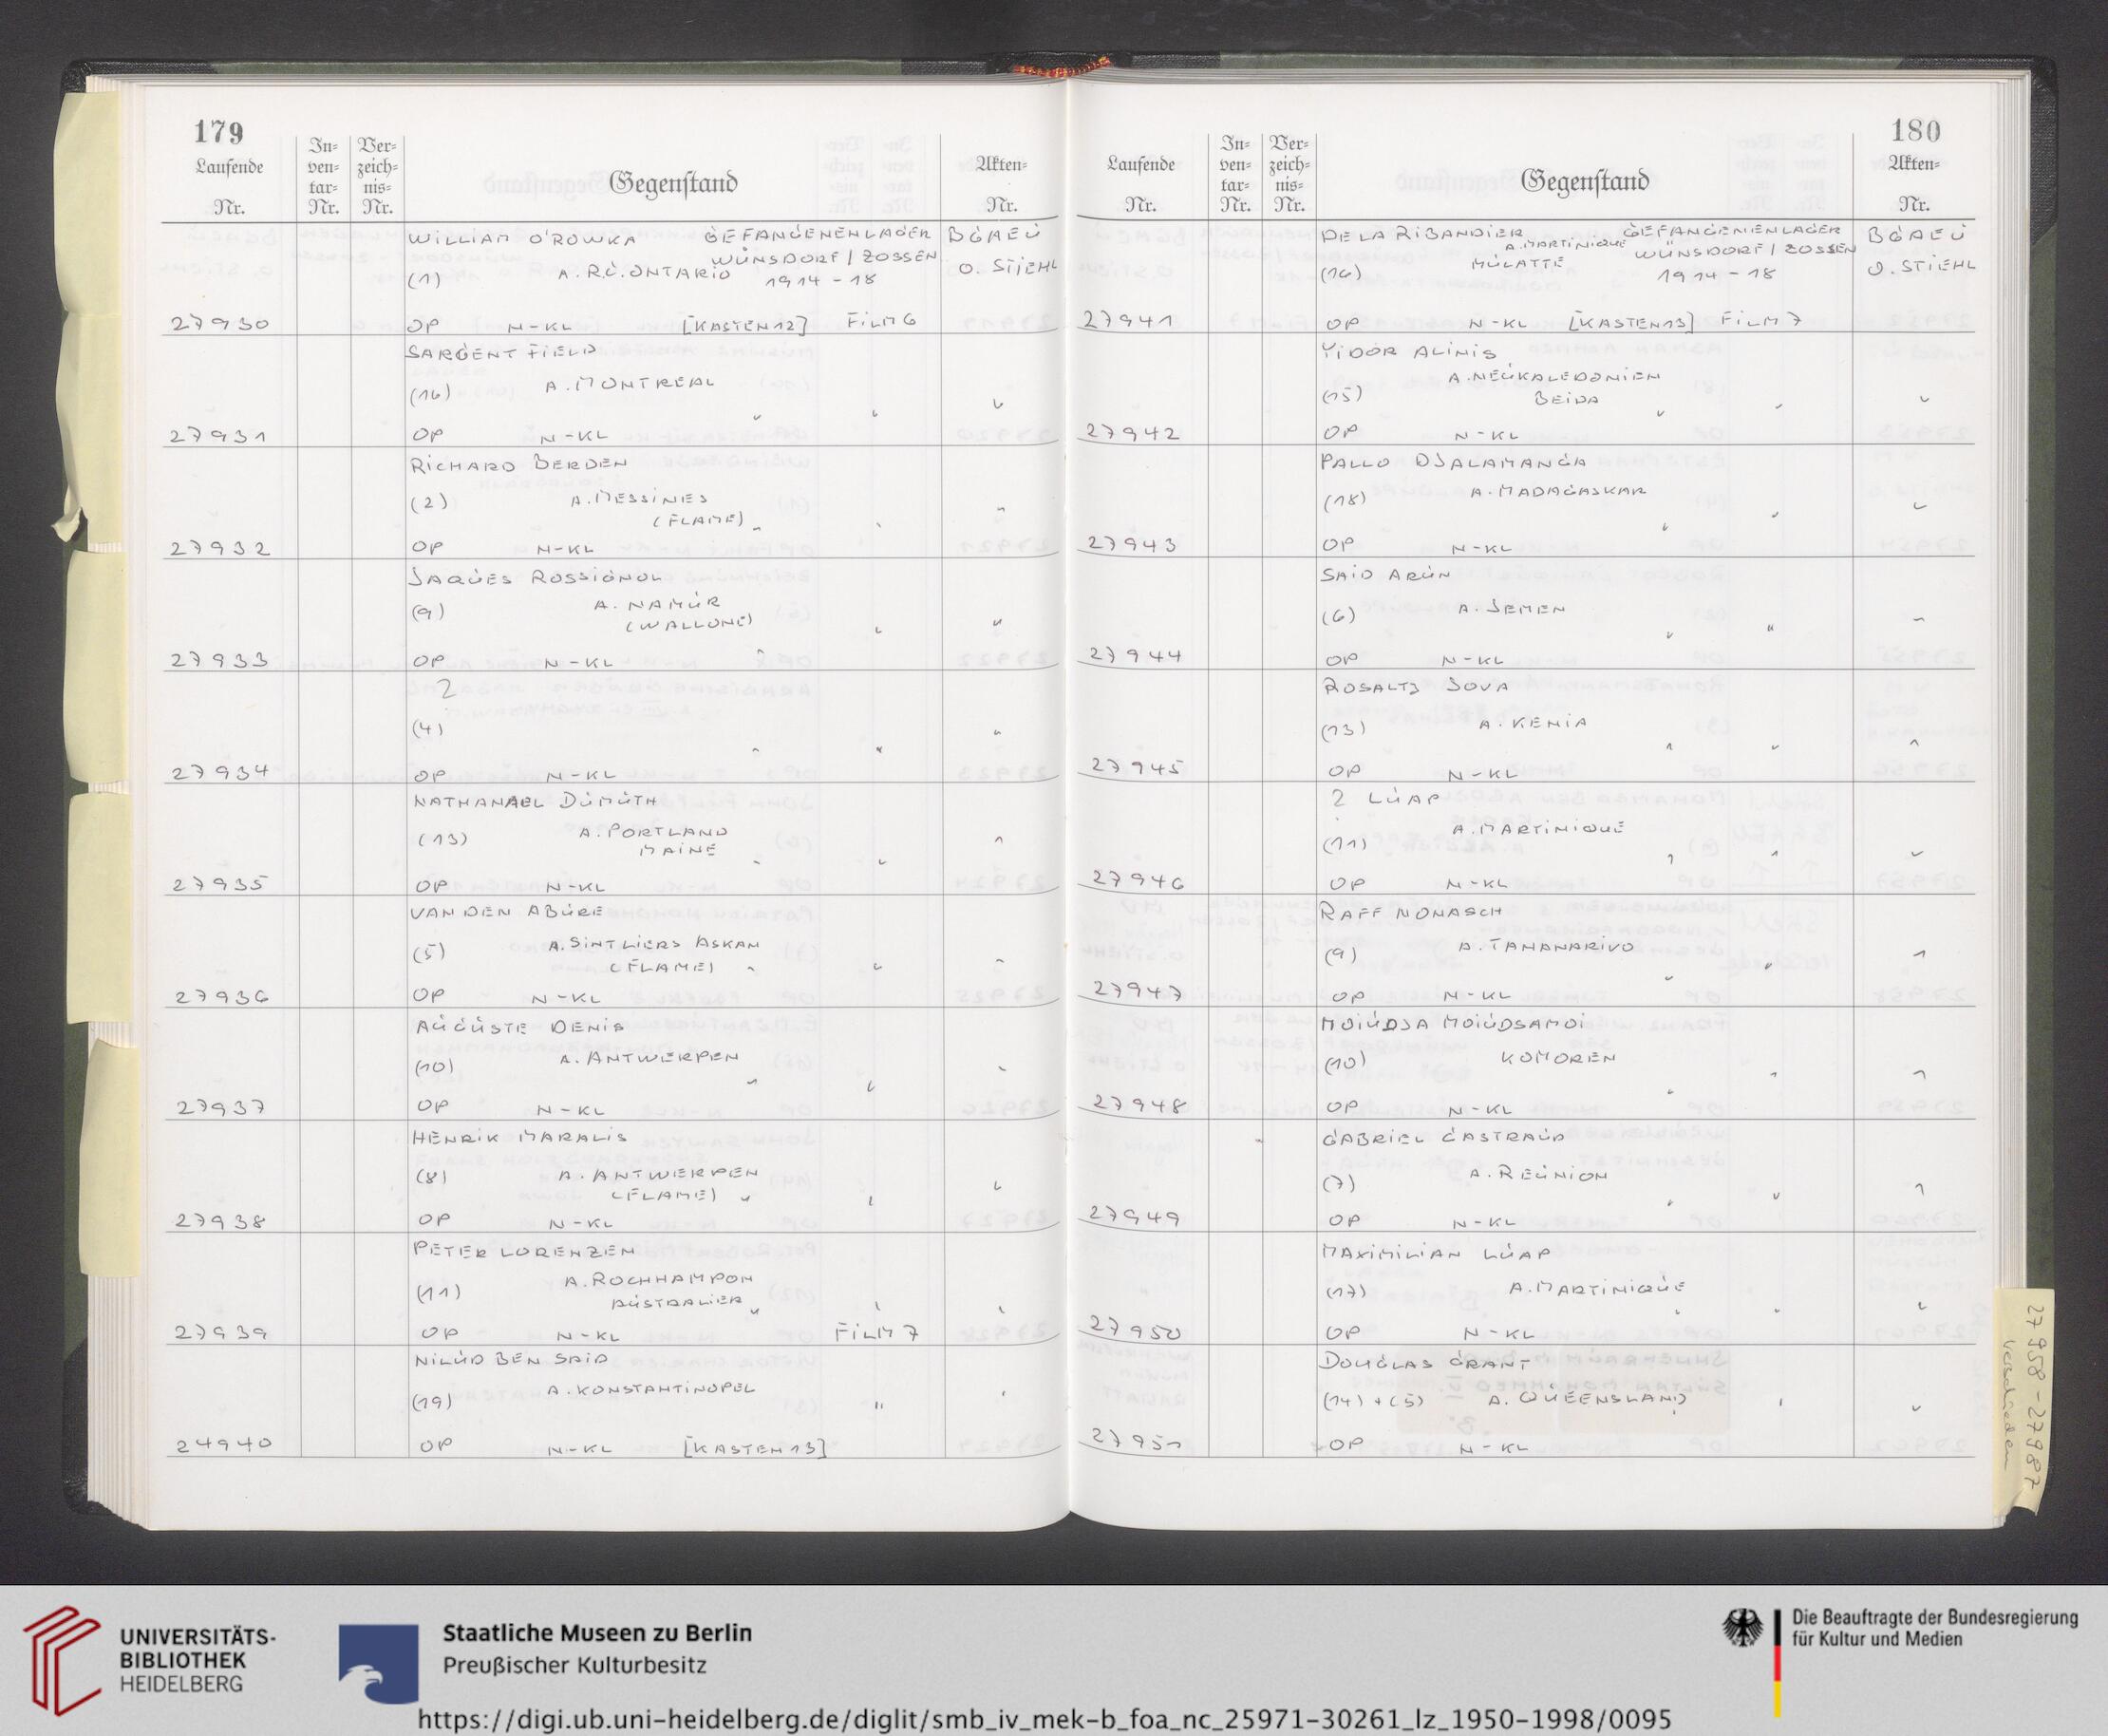 179
Laufende Nr.
In-ven-tar-Nr.
Ver-zeich-nis-Nr.
Gegenstand
Akten-Nr.
WILLIAM O'ROWKA GEFANGENENLAGER BGAEU
WÜNSDORF / ZOSSEN
(1) A. RG. ONTARIO 1914 - 18 O. STIEHL
27930 OP N-KL [KASTEN 12] FILM 6
SARGENT FIELD
(16) A. MONTREAL " " "
27931 OP N-KL
RICHARD BERDEN
(2) A. MESSINES
(FLAME) " " "
27932 OP N-KL
JAQUES ROSSIGNOL
(9) A. NAMUR
(WALLONE) " "
27933 OP N-KL "
?
(4) " " "
27934 OP N-KL
NATHANAEL DUMUTH
(13) A. PORTLAND
MAINE " " "
27935 OP N-KL
VAN DEN ABURE
(5) A. SINT LIERS ASKAM
(FLAME) " " "
27936 OP N-KL
AUGUSTE DENIS
(10) A. ANTWERPEN " " "
27937 OP N-KL
HENRIK MARALIS
(8) A. ANTWERPEN
(FLAME) " " "
27938 OP N-KL
PETER LORENZEN
(11) A. ROCHHAMPON
AUSTRALIER " " "
27939 OP N-KL FILM 7
NILUD BEN SAID
(19) A. KONSTANTINOPEL " "
24940 OP N-KL [KASTEN 13]
180
Laufende Nr.
In-ven-tar-Nr.
Ver-zeich-nis-Nr.
Gegenstand
Akten-Nr.
DE LA RIBANDIER GEFANGENENLAGER BGAEU
A. MARTINIQUE WÜNSDORF / ZOSSEN
(16) MULATTE 1914 - 18 O. STIEHL
27941 OP N-KL [KASTEN 13] FILM 7
YIDOR ALINIS
A. NEUKALEDONIEN
(15) BEIDA " " "
27942 OP N-KL
PALLO DJALAMANGA
(18) A. MADAGASKAR " " "
27943 OP N-KL
SAID ARUN
(6) A. JEMEN " " "
27944 OP N-KL
ROSALTJ JOVA
(13) A. KENIA " " "
27945 OP N-KL
? LUAP
(11) A. MARTINIQUE " " "
27946 OP N-KL
RAFF NONASCH
(9) A. TANANARIVO " " "
27947 OP N-KL
MOIUDJA MOIUDSAMOI
(10) KOMOREN " " "
27948 OP N-KL
GABRIEL GASTRAUD
(7) A. REUNION " " "
27949 OP N-KL
MAXIMILIAN LUAP
(17) A. MARTINIQUE " " "
27950 OP N-KL
DOUGLAS GRANT
(14) + (5) A. QUEENSLAND " " "
27951 OP N-KL
27958 - 27987
verschieden
UNIVERSITÄTS-
BIBLIOTHEK
HEIDELBERG
Staatliche Museen zu Berlin
Preußischer Kulturbesitz
Die Beauftragte der Bundesregierung
für Kultur und Medien
https://digi.ub.uni-heidelberg.de/diglit/smb_iv_mek-b_foa_nc_25971-30261_lz_1950-1998/0095